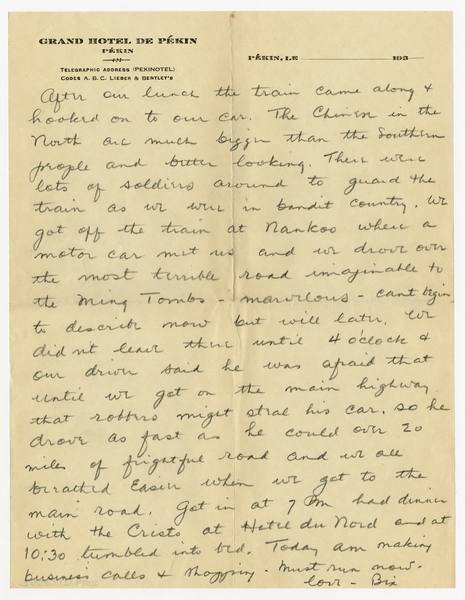 GRAND HOTEL DE PÉKIN
PÉKIN
TELEGRAPHIC ADDRESS (PEKINOTEL)
CODES A. B. C. LIEBER & BENTLEY'S
PÉKIN, LE 193
After our lunch the train came along &
hooked on to our car. The Chinese in the
North are much bigger than the Southern
people and better looking. There were
lots of soldiers around to guard the
train as we were in bandit country. We
got off the train at Nankoo where a
motor car met us and we drove over
the most terrible road imaginable to
the Ming Tombs - marvelous - cant begin
to describe now but will later. We
didn't leave there until 4 o'clock &
our driver said he was afraid that
until we got on the main highway
that robbers might steal his car. so he
drove as fast as he could over 20
miles of frightful road and we all
breathed Easier when we got to the
main road. Got in at 7 Pm had dinner
with the Crists at Hotel du Nord and at
10:30 tumbled into bed. Today am making
business calls & shopping. Must run now.
Love - Bix